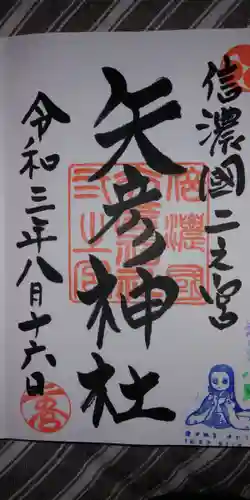 信濃國二之宮
矢彦神社
令和三年八月十六日